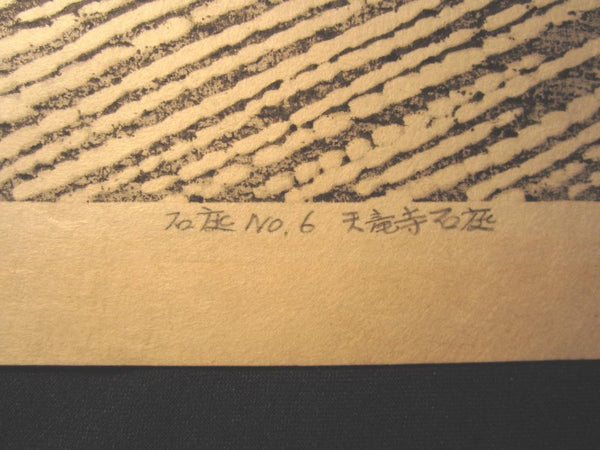 石庭 NO.6 天竜寺石庭